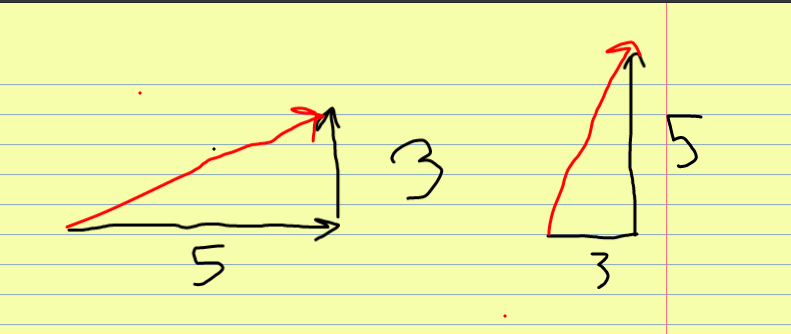 3
5
5
3